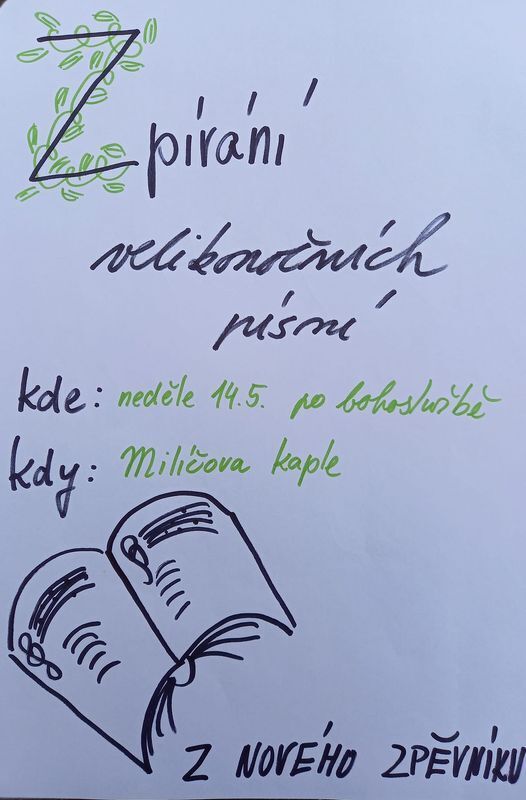 Zpívání
velikonočních
písní
kde: neděle 14.5. po bohoslužbě
kdy: Milíčova kaple
Z NOVÉHO ZPĚVNÍKU